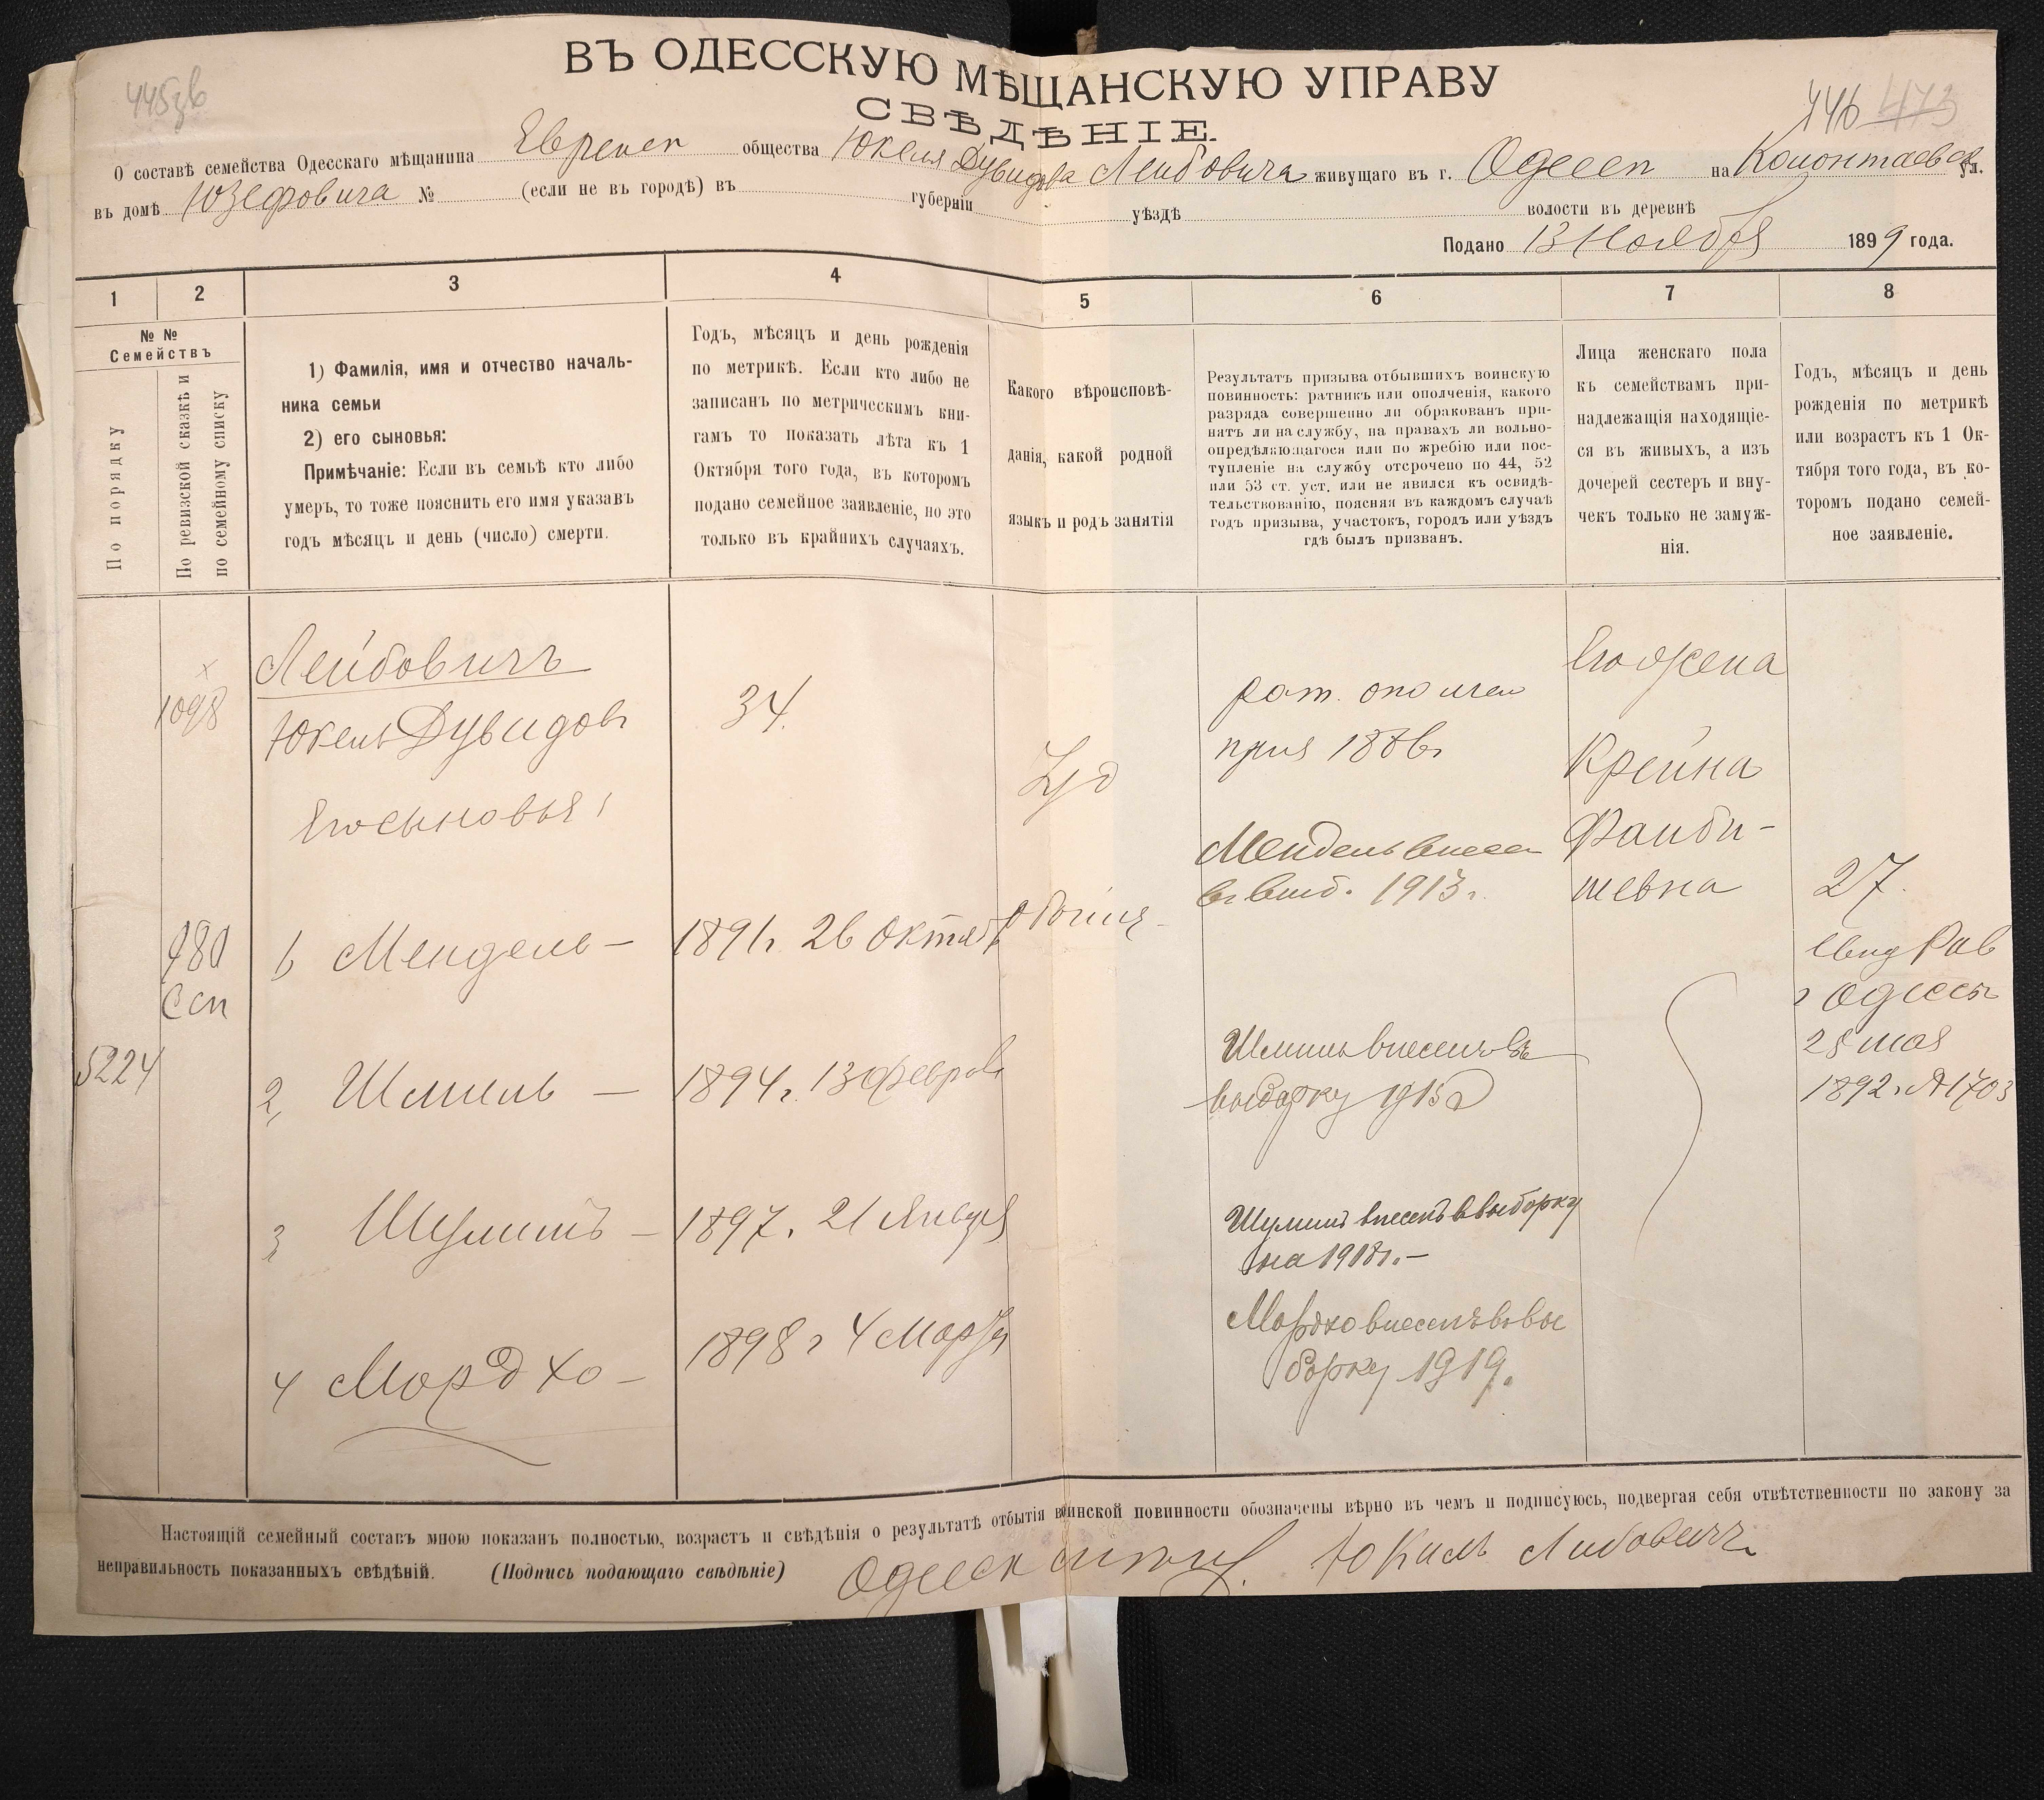 ВЪ ОДЕССКУЮ МѢЩАНСКУЮ УПРАВУ
СВѢДѢНІЕ.
446 473
О составѣ семейства Одесскаго мѣщанина Евреск общества Юкеля Дувидова Лейбовича живущаго въ г. Одесск на Колонтаевск ул.
въ домѣ Юзефовича № (если не въ городѣ) въ губерніи уѣздѣ волости въ деревнѣ
Подано 13 Ноября 1899 года.
1 2 3 4 5 6 7 8
№ №
Семействъ
По порядку
По ревизской сказкѣ и
по семейному списку
1) Фамилія, имя и отчество началь-
ника семьи
2) его сыновья:
Примѣчаніе: Если въ семьѣ кто либо
умеръ, то тоже пояснить его имя указавъ
годъ мѣсяцъ и день (число) смерти.
Годъ, мѣсяцъ и день рожденія
по метрикѣ. Если кто либо не
записанъ по метрическимъ кни-
гамъ то показать лѣта къ 1
Октября того года, въ которомъ
подано семейное заявленіе, но это
только въ крайнихъ случаяхъ.
Какого вѣроисповѣ-
данія, какой родной
языкъ и родъ занятія
Результатъ призыва отбывшихъ воинскую
повинность: ратникъ или ополченія, какого
разряда совершенно ли обракованъ при-
нятъ ли на службу, на правахъ ли вольно-
опредѣляющагося или по жребію или пос-
тупленіе на службу отсрочено по 44, 52
или 53 ст. уст. или не явился къ освидѣ-
тельствованію, поясняя въ каждомъ случаѣ
годъ призыва, участокъ, городъ или уѣздъ
гдѣ былъ призванъ.
Лица женскаго пола
къ семействамъ при-
надлежащія находящіе-
ся въ живыхъ, а изъ
дочерей сестеръ и вну-
чекъ только не замуж-
нія.
Годъ, мѣсяцъ и день
рожденія по метрикѣ
или возрастъ къ 1 Ок-
тября того года, въ ко-
торомъ подано семей-
ное заявленіе.
1098
Лейбовичъ
Юкель Дувидовъ
34.
Іуд
рат. ополчен
приз 1886г
Его жена
Крейна
Файби-
шевна
27.
Его сыновья:
Мендель внесен
въ выб. 1913г.
980
Ссп
1 Мендель — 1891г. 26 Октяб
свид Рав
г Одессы
25 мая
1892г. №1703
5224
2, Шмиль — 1894г. 13 Феврал
Шмиль внесенъ въ
выборку 1915
3 Шулимъ — 1897. 21 Января
Шулимъ внесенъ в выборку
на 1918г. —
4 Мордко — 1898 г 4 Марта
Мордко внесенъ въ вы
борку 1919.
Настоящій семейный составъ мною показанъ полностью, возрастъ и свѣдѣнія о результатѣ отбытія воинской повинности обозначены вѣрно въ чемъ и подписуюсь, подвергая себя отвѣтственности по закону за
неправильность показанныхъ свѣдѣній. (Подпись подающаго свѣдѣніе) Юкиль Либовичъ